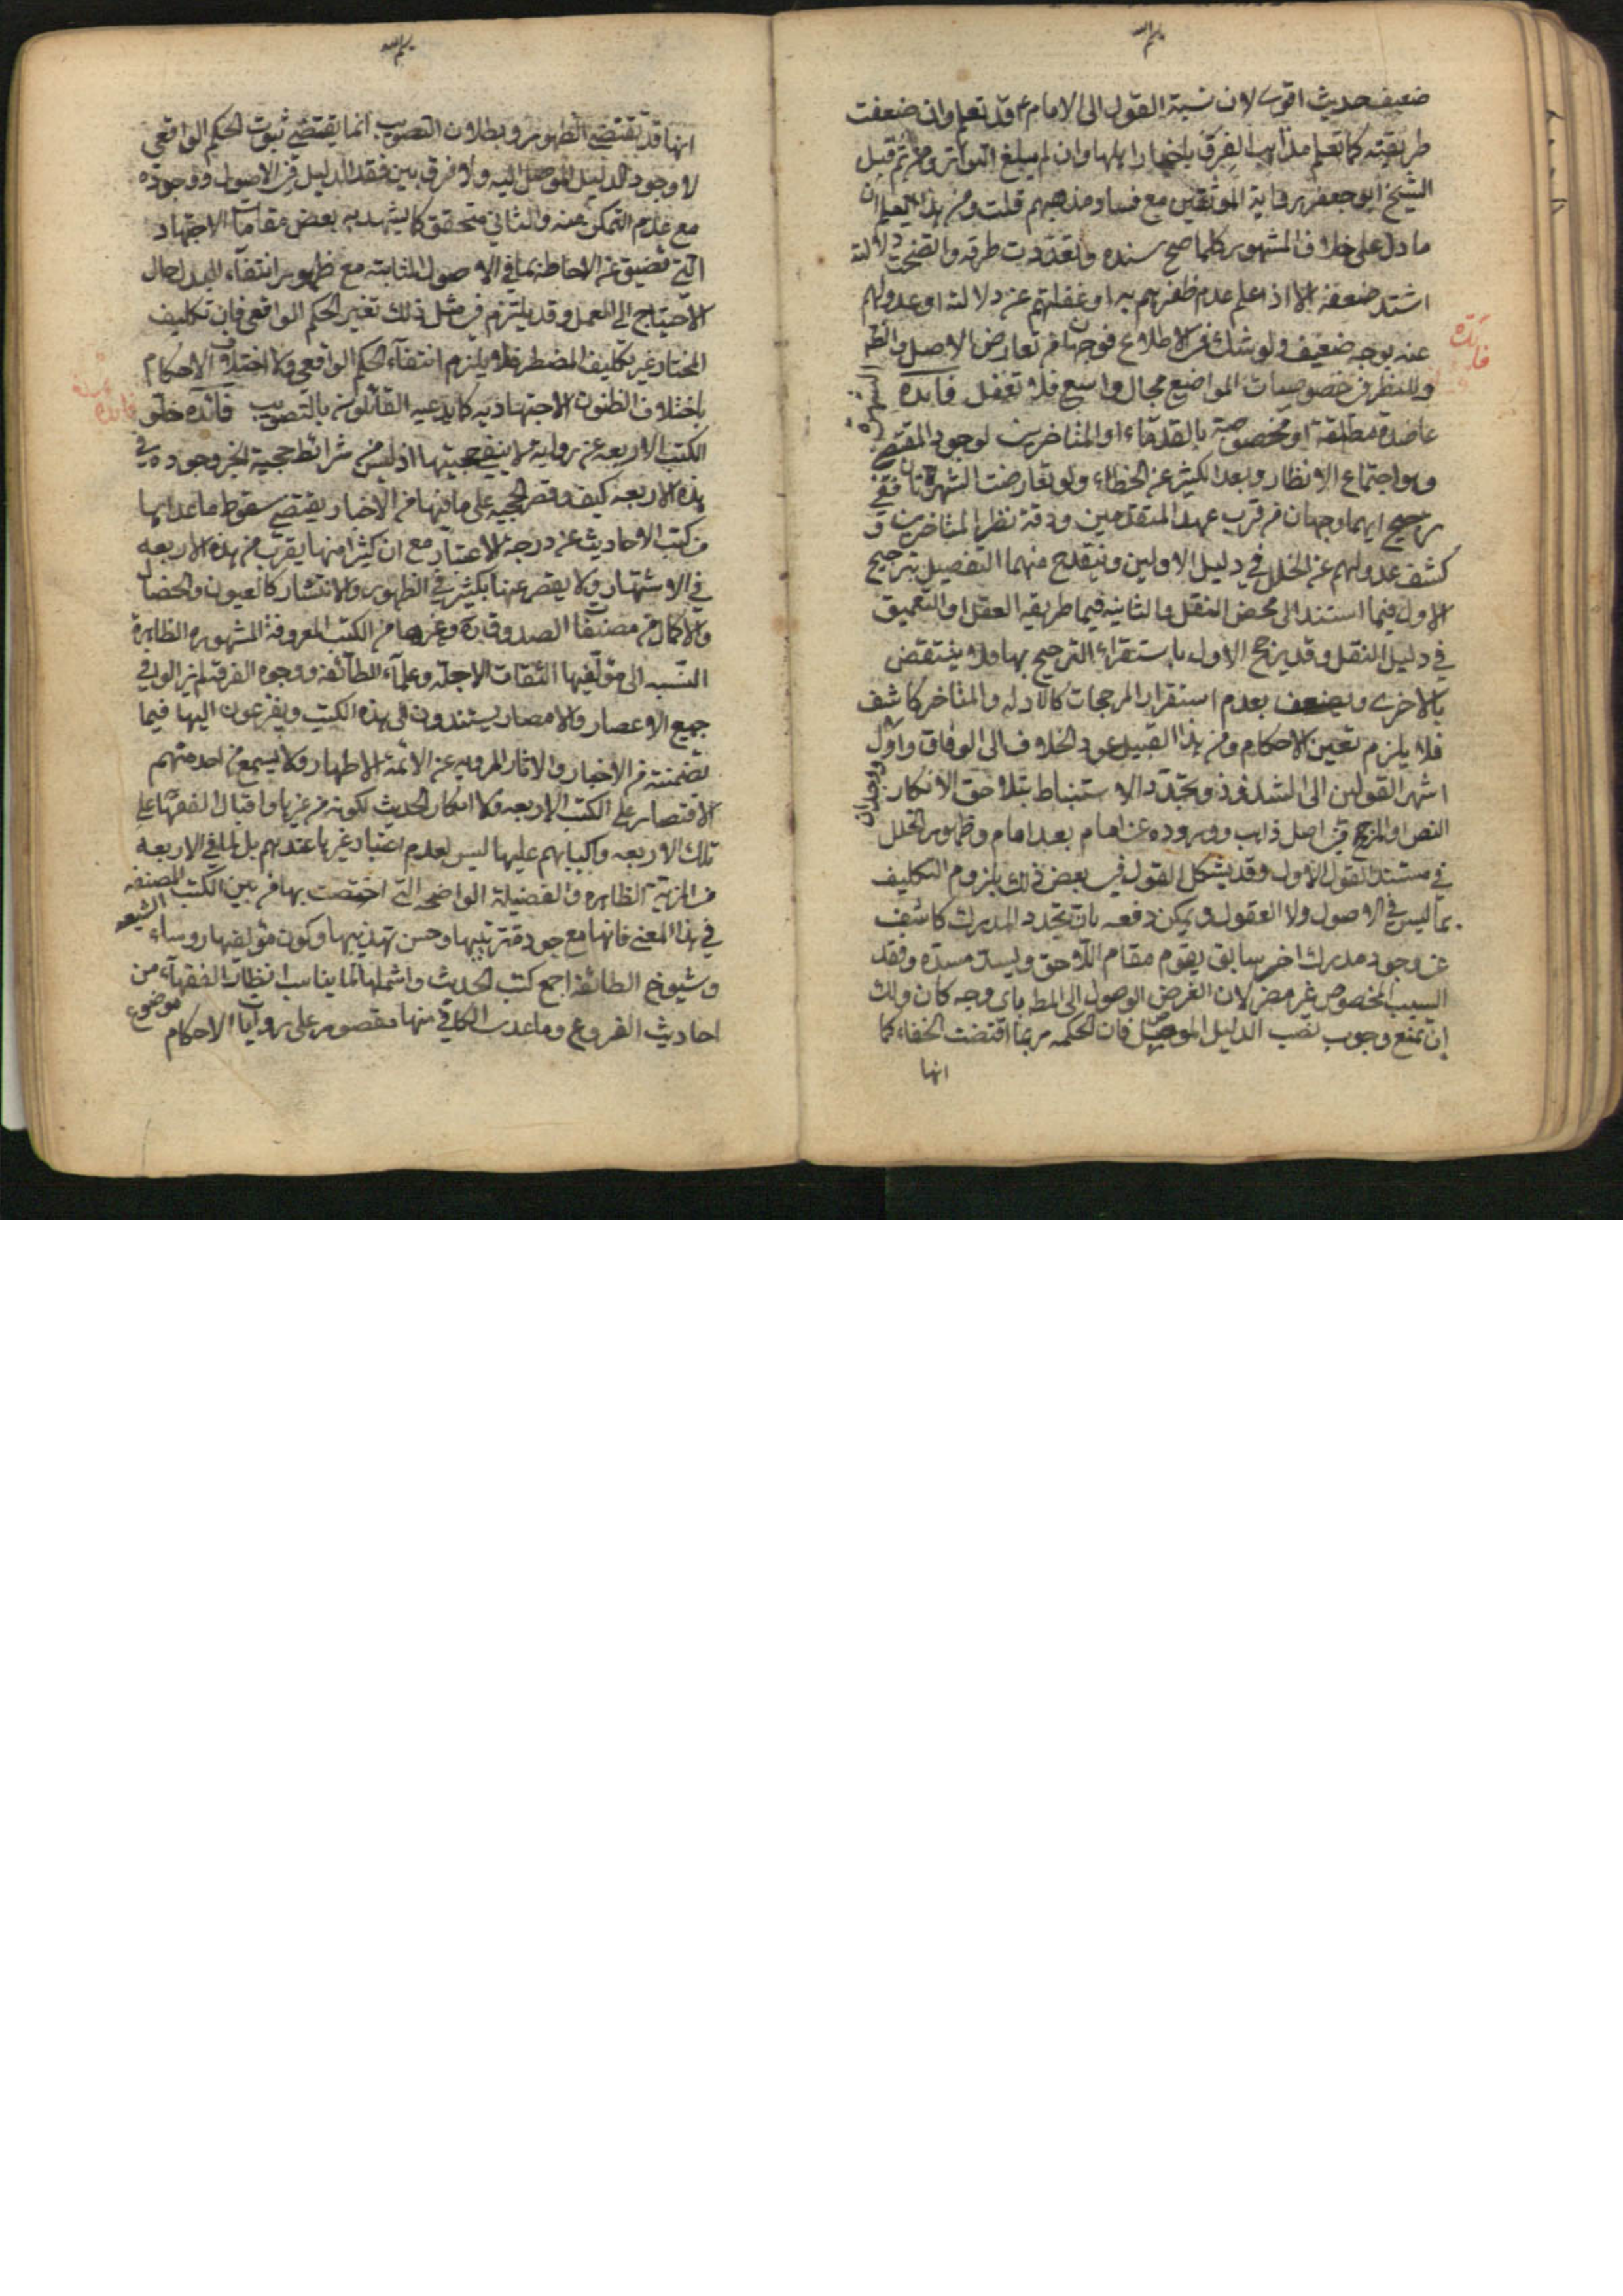 بسم الله
ضعيف حديث اقوى لان نسبة القول الى الامام ع قد تعلم وان ضعفت
طريقته كما تعلم مذاهب الفرق باخبار اهلها وان لم يبلغ التواتر ومن ثم قبل
الشيخ ابو جعفر رواية الموثقين مع فساد مذهبهم قلت ومن هذا يعلم ان
ما دل على خلاف المشهور كلما صح سنده وتعددت طرقه واتضحت دلالته
اشتد ضعفه الا اذا علم عدم ظفرهم به او غفلتهم عن دلالته او عدولهم
عنه بوجه ضعيف ولو شك في الاطلاع فوجهان من تعارض الاصل والظ
وللنظر في خصوصيات المواضع مجال واسع فلا تغفل فايده الشهرة
فايدة
عاضدة مطلقة او مخصوصة بالقدماء او المتاخرين لوجود المقتضي
وهو اجتماع الانظار وبعد الكثير عن الخطاء ولو تعارضت الشهرتان ففي
ترجيح ايهما وجهان من قرب عهد المتقدمين ودقة نظر المتاخرين و
كشف عدولهم عن الخلل في دليل الاولين وينقدح منهما التفصيل بترجيح
الاول فيما استند الى محض النقل والثانيه فيما طريقه العقل او التعميق
في دليل النقل وقد يرجح الاول باستقراء الترجيح بها ولا ينتقض
بالاخرى ويضعف بعدم استقرار المرجحات كالادله والمتاخر كاشف
فلا يلزم تعين الاحكام ومن هذا القبيل عود الخلاف الى الوفاق واول
اشهر القولين الى الشذوذ وتجدد الاستنباط بتلاحق الافكار ووجدان
النص او المرجح في اصل ذاهب ووروده عن امام بعد امام وظهور الخلل
في مستند القول الاول وقد يشكل القول في بعض ذلك بلزوم التكليف
بما ليس في الاصول ولا العقول ويمكن دفعه بان تجدد المدرك كاشف
عن وجود مدرك اخر سابق يقوم مقام اللاحق ويسد مسده وفقد
السبب المخصوص غير مضر لان الغرض الوصول الى المط باى وجه كان ولك
ان تمنع وجوب نصب الدليل الموصل فان الحكمه ربما اقتضت الخفاء كما
انها
بسم الله
انها قد تقتضي الظهور وبطلان التصويب انما يقتضي ثبوت الحكم الواقعي
لا وجود الدليل الموصل اليه ولا فرق بين فقد الدليل في الاصول ووجوده
مع عدم التمكن منه والثاني متحقق كما يشهد به بعض مقامات الاجتهاد
التي تضيق عن الاحاطة بما في الاصول الثابته مع ظهور انتفاء البدل حال
الاحتياج الى العمل وقد يلتزم في مثل ذلك تغير الحكم الواقعي فان تكليف
المختار غير تكليف المضطر فلا يلزم انتفاء الحكم الواقعي ولا اختلاف الاحكام
باختلاف الظنون الاجتهاديه كما يدعيه القائلون بالتصويب فائده خلو
فائدة
الكتب الاربعه عن رواية لا ينفي حجيتها اذ ليس من شرائط حجية الخبر وجوده في
هذه الاربعه كيف وقصر الحجيه على ما فيها من الاخبار يقتضي سقوط ما عداها
من كتب الاحاديث عن درجة الاعتبار مع ان كثيرا منها يقرب من هذه الاربعه
في الاشتهار ولا يقصر عنها بكثير في الظهور والانتشار كالعيون والخصال
والاكمال من مصنفات الصدوق وغيرها من الكتب المعروفة المشهوره الظاهرة
النسبه الى مؤلفيها الثقات الاجله وعلماء الطائفه ووجوه الفرقه لم يزالوا في
جميع الاعصار والامصار يستندون الى هذه الكتب ويفزعون اليها فيما
تضمنته من الاخبار والاثار المرويه عن الائمة الاطهار ولا يسمع من احد منهم
الاقتصار على الكتب الاربعه ولا انكار الحديث لكونه من غيرها واقبال الفقهاء على
تلك الاربعه واكبابهم عليها ليس لعدم اعتبار غيرها عندهم بل لما في الاربعه
من المزية الظاهره والفضيلة الواضحه التي اختصت بها من بين الكتب المصنفه
في هذا المعنى فانها مع جودة ترتيبها وحسن تهذيبها وكون مؤلفيها رؤساء الشيعه
وشيوخ الطائفه اجمع كتب الحديث واشملها لما يناسب انظار الفقهاء من
احاديث الفروع وما عدا الكافي منها مقصور على روايات الاحكام موضوع